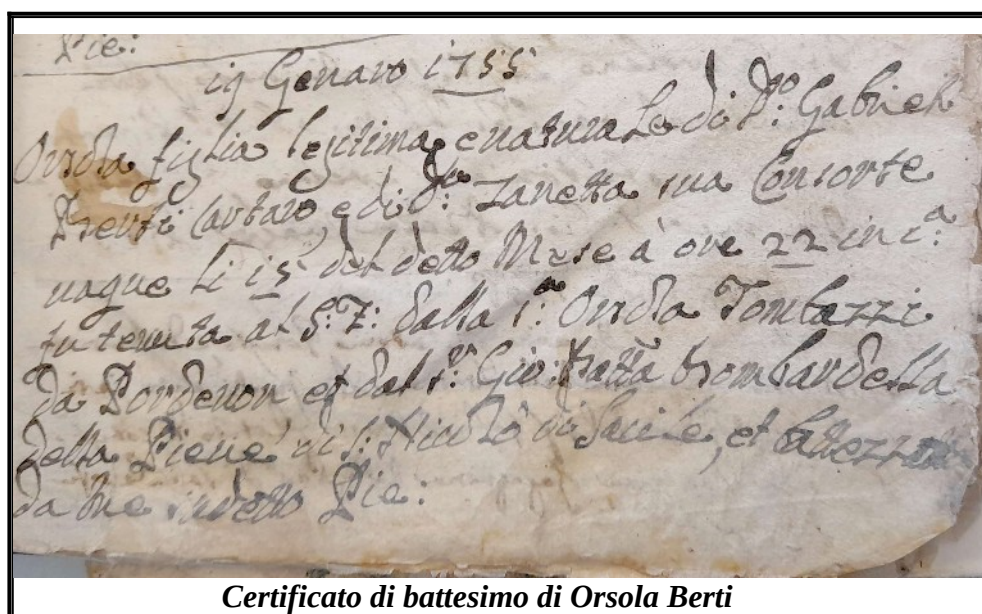 Pie:
19 Genaro 1755
Orsola figlia legitima, e naturale di D:º Gabriele
Berti Cartaro, e di D:ª Zanetta sua Consorte
naque li 15 del detto Mese à ore 22 in c:ª
fu tenuta al S: F: dalla s:ª Orsola Tombazzi
da Pordenon et dal s:r Gio: Batta Brombardella
della Pieve di S: Nicolò di Sacile, et battezzata
da me sudetto Pie:
Certificato di battesimo di Orsola Berti